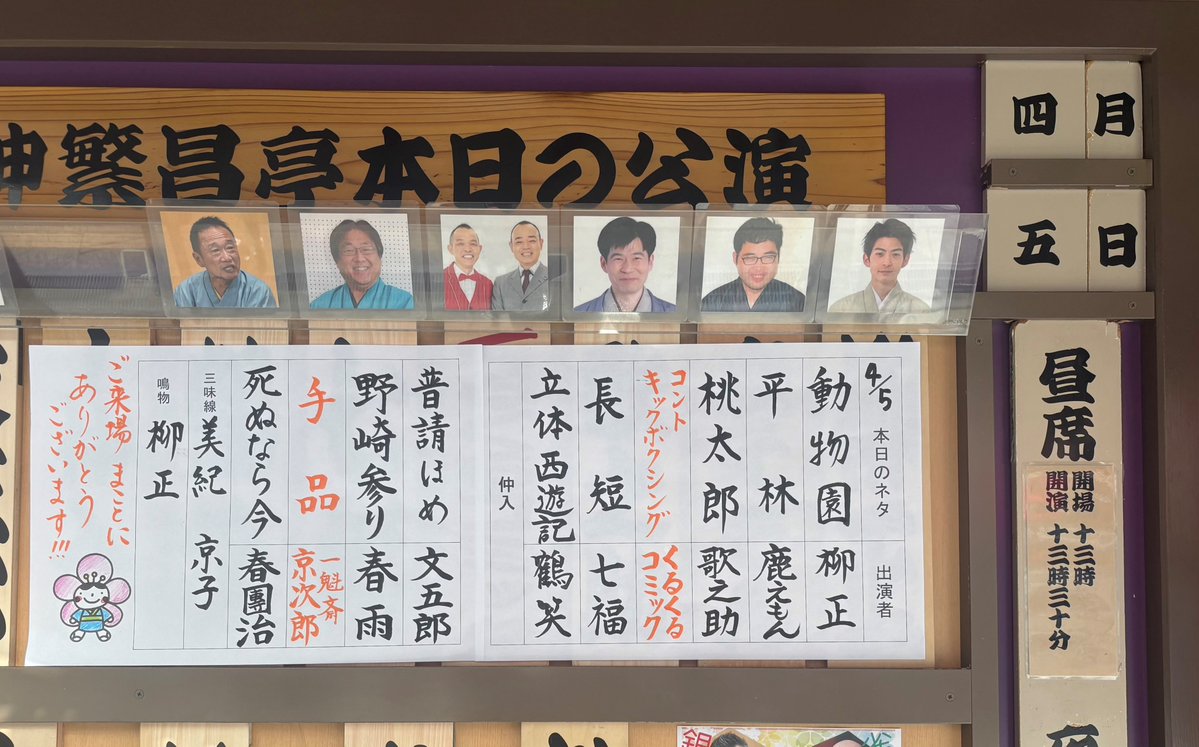 繁昌亭本日の公演
四月
五日
昼席
開場 十三時
開演 十三時三十分
4/5 本日のネタ 出演者
動物園 柳正
平林 鹿えもん
桃太郎 歌之助
コント キックボクシング くるくるコミック
長短 七福
立体西遊記 鶴笑
仲入
普請ほめ 文五郎
野崎参り 春雨
手品 一魁斎 京次郎
死ぬなら今 春團治
三味線 美紀 京子
鳴物 柳正
ご来場 まことに
ありがとう
ございます!!!